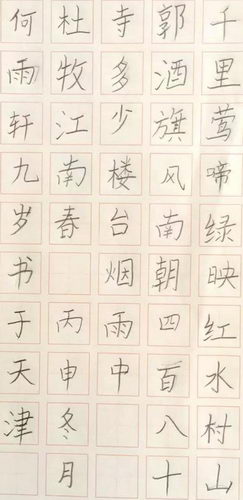 千里莺啼绿映红水村山
郭酒旗风南朝四百八十
寺多少楼台烟雨中
杜牧江南春 丙申冬月
何雨轩九岁书于天津